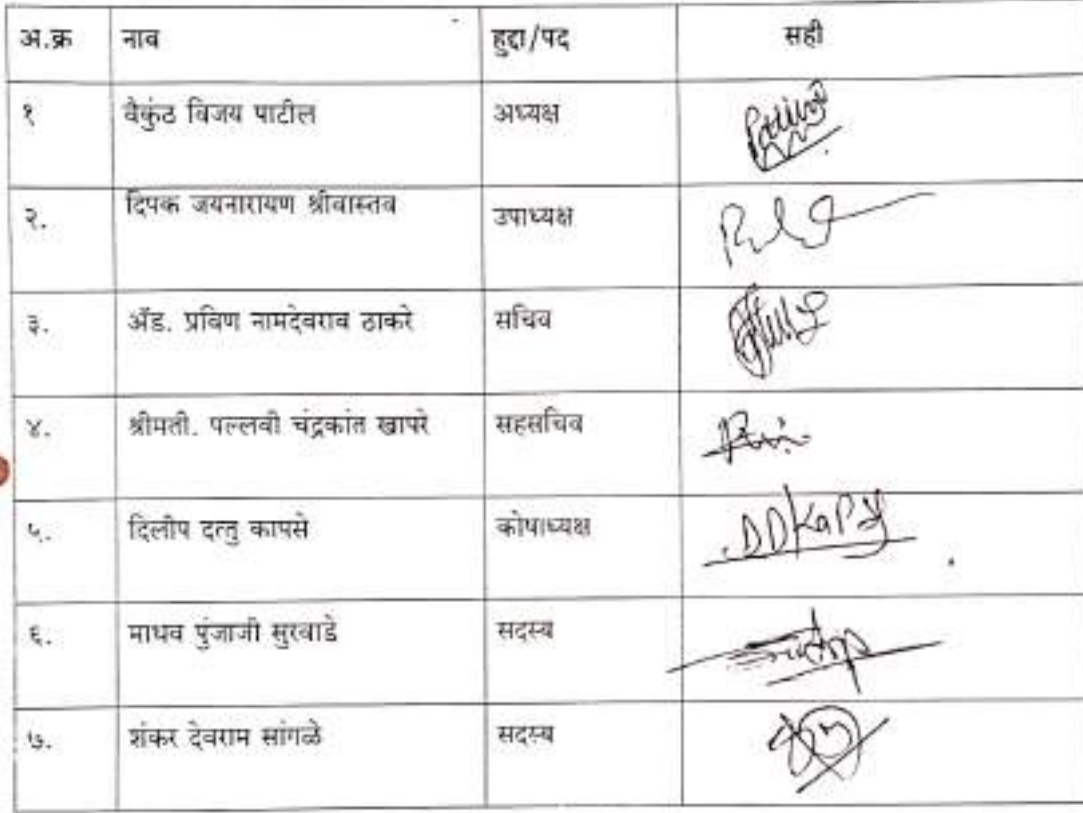 अ.क्र नाव हुद्दा/पद सही
१ वैकुंठ विजय पाटील अध्यक्ष
२. दिपक जयनारायण श्रीवास्तव उपाध्यक्ष
३. ॲड. प्रविण नामदेवराव ठाकरे सचिव
४. श्रीमती. पल्लवी चंद्रकांत खापरे सहसचिव
५. दिलीप दत्तु कापसे कोषाध्यक्ष DDKaPse
६. माधव पुंजाजी सुरवाडे सदस्य
७. शंकर देवराम सांगळे सदस्य